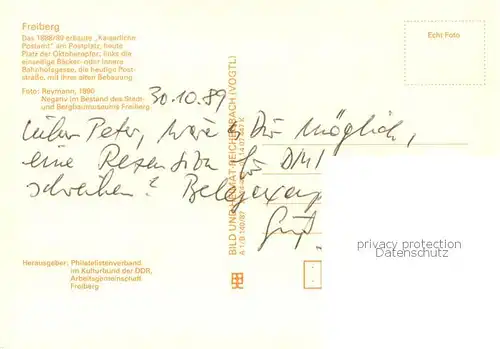 Freiberg
Das 1888/89 erbaute „Kaiserliche
Postamt" am Postplatz, heute
Platz der Oktoberopfer; links die
einseitige Bäcker- oder Innere
Bahnhofsgasse, die heutige Post-
straße, mit ihrer alten Bebauung
Foto: Reymann, 1890
Negativ im Bestand des Stadt-
und Bergbaumuseums Freiberg
Echt Foto
30.10.89
Lieber Peter, wäre es Dir möglich,
eine Rezension für
schreiben?
BILD UND HEIMAT REICHENBACH (VOGTL)
A 1/B 140/87
Herausgeber: Philatelistenverband
im Kulturbund der DDR,
Arbeitsgemeinschaft
Freiberg
privacy protection
Datenschutz